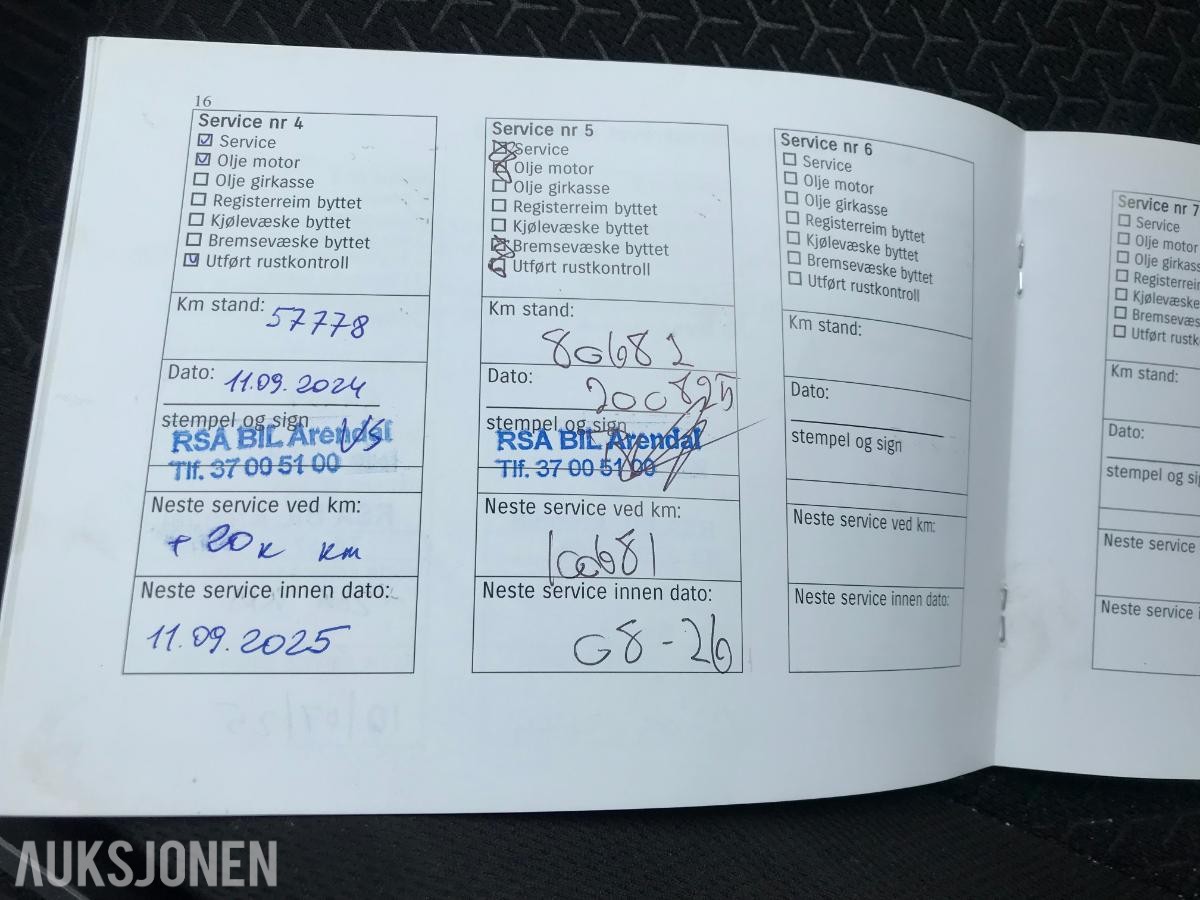 16
Service nr 4
Service
Olje motor
Olje girkasse
Registerreim byttet
Kjølevæske byttet
Bremsevæske byttet
Utført rustkontroll
Km stand: 57778
Dato: 11.09.2024
stempel og sign
RSA BIL Arendal
Tlf. 37 00 51 00
Neste service ved km:
+ 20k km
Neste service innen dato:
11.09.2025
Service nr 5
Service
Olje motor
Olje girkasse
Registerreim byttet
Kjølevæske byttet
Bremsevæske byttet
Utført rustkontroll
Km stand:
80681
Dato: 200825
stempel og sign
RSA BIL Arendal
Tlf. 37 00 51 00
Neste service ved km:
100681
Neste service innen dato:
08-26
Service nr 6
Service
Olje motor
Olje girkasse
Registerreim byttet
Kjølevæske byttet
Bremsevæske byttet
Utført rustkontroll
Km stand:
Dato:
stempel og sign
Neste service ved km:
Neste service innen dato:
Service nr 7
Service
Olje motor
Olje girkass
Registerrei
Kjølevæske
Bremsevæs
Utført rustk
Km stand:
Dato:
stempel og si
Neste service
Neste service i
AUKSJONEN